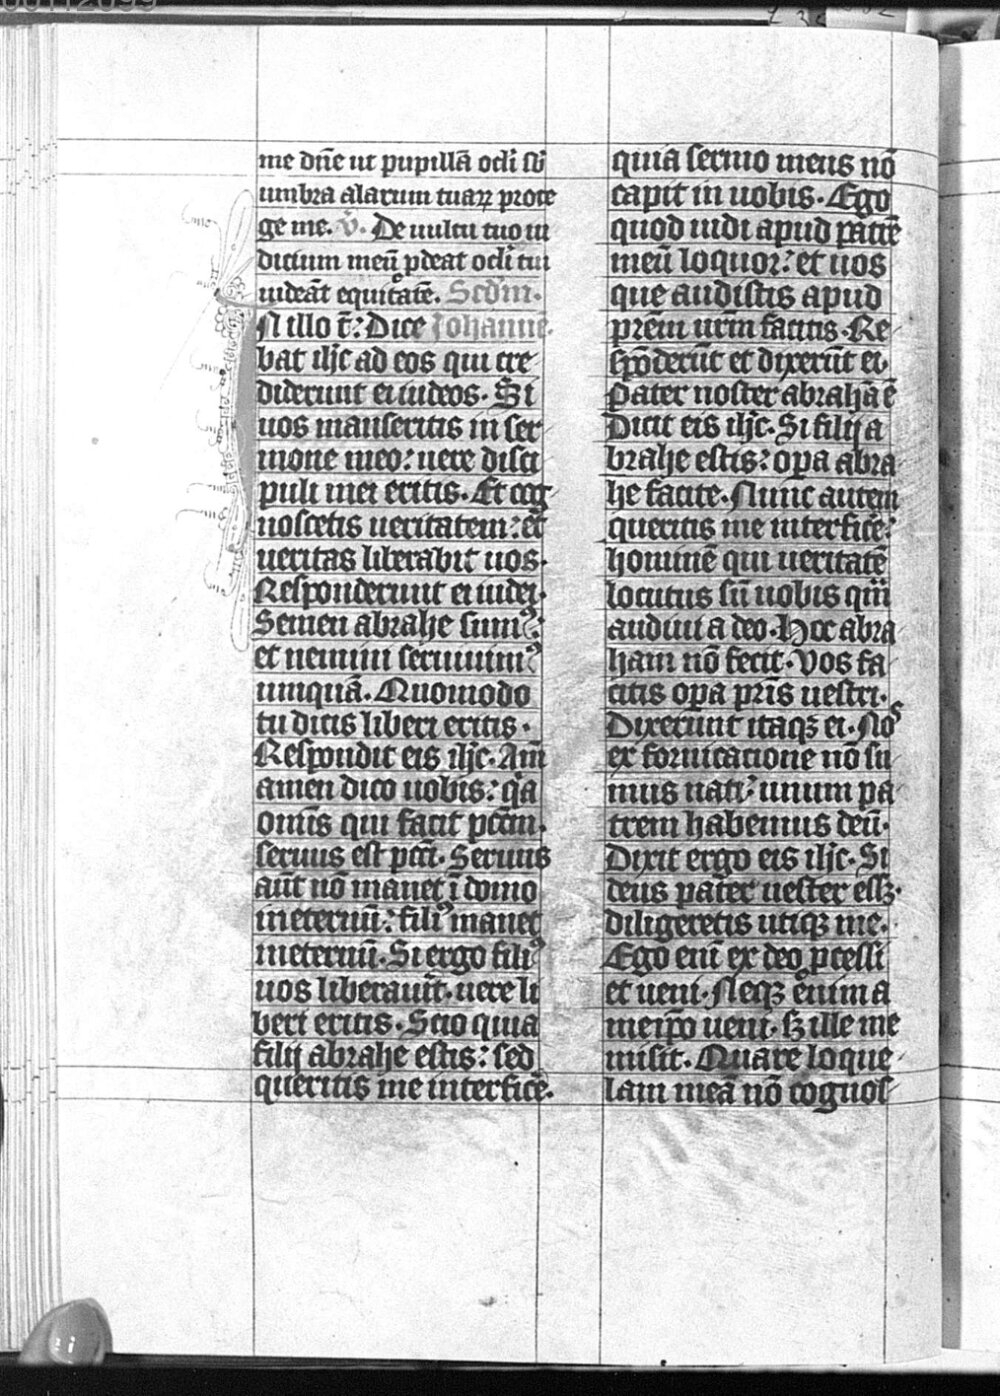 me dn̄e ut pupillā ocl̄i sb̄
umbra alarum tuaꝝ prote
ge me. v̄. De uultu tuo iu
dicium meū ꝓdeat ocl̄i tui
uideāt equitatē. Scd̄m.
N illo t̄: Dice Johannē.
bat ih̄c ad eos qui cre
diderunt ei iudeos. Si
uos manseritis in ser
mone meo: uere disci
puli mei eritis. Et cog
noscetis ueritatem: et
ueritas liberabit uos.
Responderunt ei iudei.
Semen abrahe sumꝰ:
et nemini seruiuimꝰ
unquā. Quomodo
tu dicis liberi eritis.
Respondit eis ih̄c. Am̄
amen dico uobis: qa
omīs qui facit pctm̄.
seruus est pcti. Seruus
aūt nō manet ī domo
in eternū: filiꝰ manet
in eternū. Si ergo filiꝰ
uos liberauīt. uere li
beri eritis. Scio quia
filij abrahe estis: sed
queritis me interficē.
quia sermo meus nō
capit in uobis. Ego
quod uidi apud patrē
meū loquor: et uos
que audistis apud
prēm urm̄ facitis. Re
spōderūt et dixerūt ei.
Pater noster abrahā ē
Dicit eis ih̄c. Si filij a
brahe estis: opa abra
he facite. Nunc autem
queritis me interficē:
hominē qui ueritatē
locutus sū uobis quā
audiui a deo. Hoc abra
ham nō fecit. Vos fa
citis opa pris uestri.
Dixerunt itaqꝫ ei. Nos
ex fornicatione nō su
mus nati: unum pa
trem habemus deū.
Dixit ergo eis ih̄c. Si
deus pater uester essꝫ.
diligeretis utiqꝫ me.
Ego enī ex deo ꝓcessi
et ueni. Neqꝫ enim a
meip̄o ueni. sꝫ ille me
misit. Quare loque
lam meā nō cognos